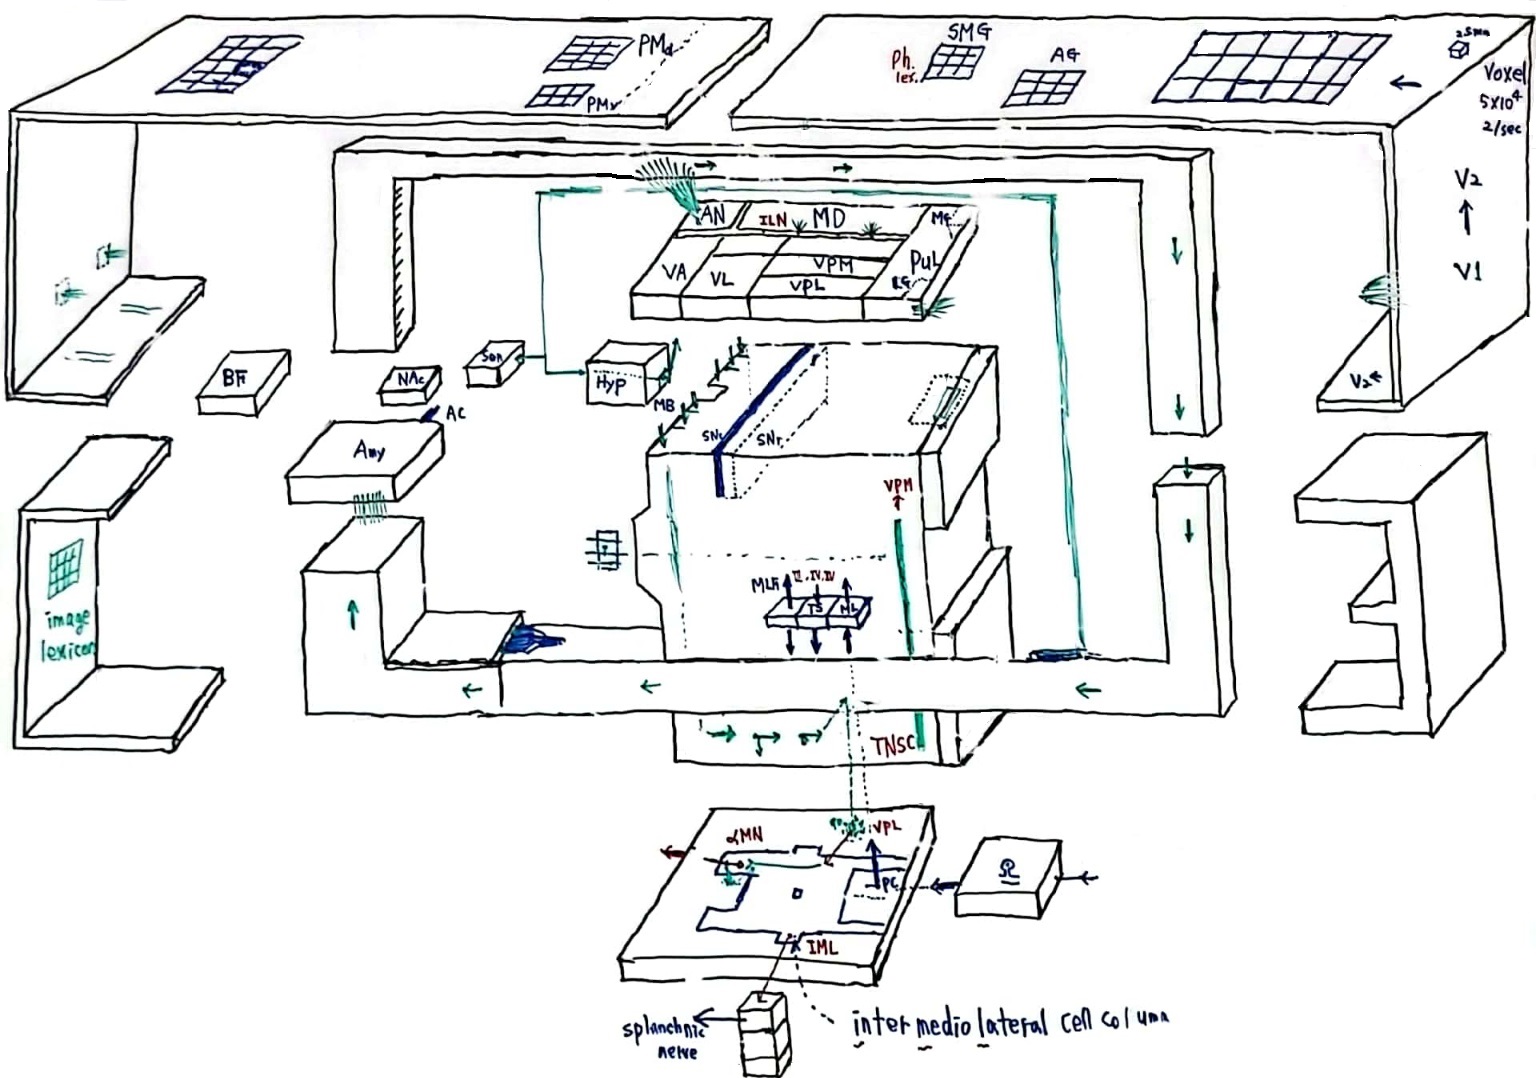 PMd
PMv
SMG
Ph.
lex.
AG
Voxel
5×10⁴
2/sec
V2
V1
V2
AN
ILN
MD
MG
VA
VL
VPM
VPL
Pul
LG
BF
NAc
Sep
Hyp
AC
Amy
MB
SNc
SNr
VPM
MLF
III.IV.VI
TS
ML
image
lexicon
TNSC
αMN
VPL
PC
IML
splanchnic
nerve
intermediolateral cell column